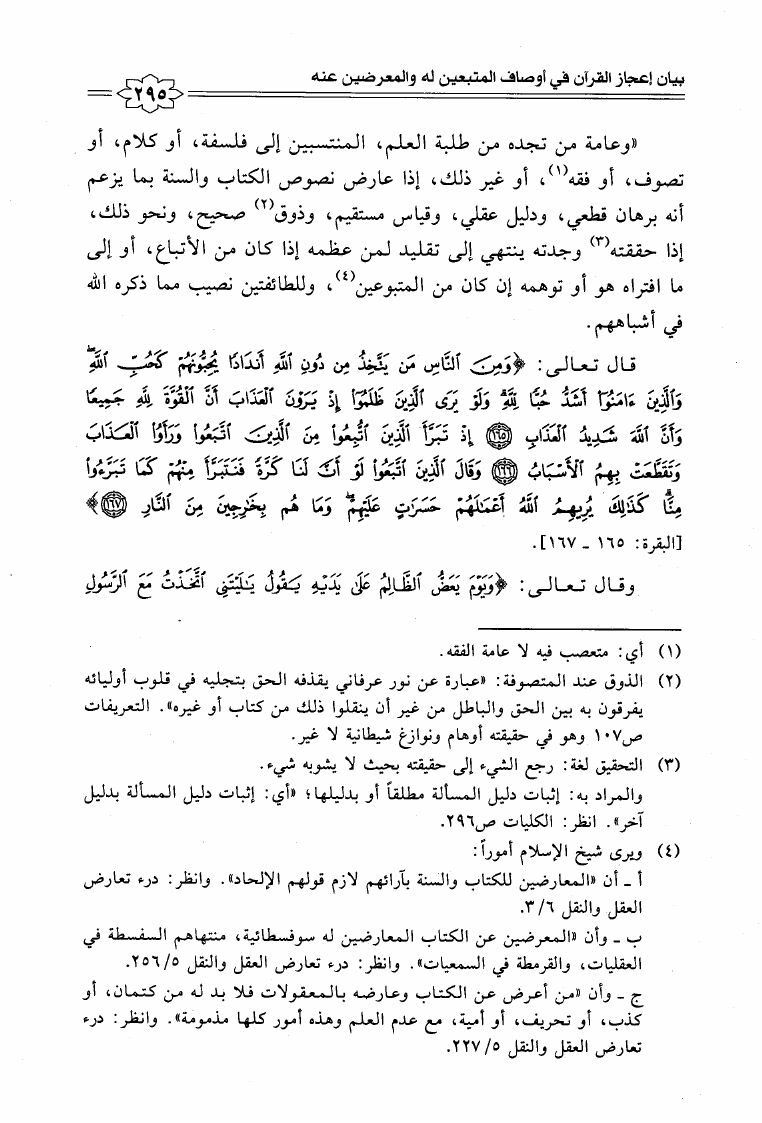 بيان إعجاز القرآن في أوصاف المتبعين له والمعرضين عنه
٢٩٥
«وعامة من تجده من طلبة العلم، المنتسبين إلى فلسفة، أو كلام، أو
تصوف، أو فقه(١)، أو غير ذلك، إذا عارض نصوص الكتاب والسنة بما يزعم
أنه برهان قطعي، ودليل عقلي، وقياس مستقيم، وذوق(٢) صحيح، ونحو ذلك،
إذا حققته(٣) وجدته ينتهي إلى تقليد لمن عظمه إذا كان من الأتباع، أو إلى
ما افتراه هو أو توهمه إن كان من المتبوعين(٤)، وللطائفتين نصيب مما ذكره الله
في أشباههم.
قال تعالى: ﴿وَمِنَ النَّاسِ مَن يَتَّخِذُ مِن دُونِ اللَّهِ أَندَادًا يُحِبُّونَهُمْ كَحُبِّ اللَّهِ ۖ
وَالَّذِينَ ءَامَنُوٓا أَشَدُّ حُبًّا لِّلَّهِ ۗ وَلَوْ يَرَى الَّذِينَ ظَلَمُوٓا إِذْ يَرَوْنَ الْعَذَابَ أَنَّ الْقُوَّةَ لِلَّهِ جَمِيعًا
وَأَنَّ اللَّهَ شَدِيدُ الْعَذَابِ ﴿١٦٥﴾ إِذْ تَبَرَّأَ الَّذِينَ اتُّبِعُوا مِنَ الَّذِينَ اتَّبَعُوا وَرَأَوُا الْعَذَابَ
وَتَقَطَّعَتْ بِهِمُ الْأَسْبَابُ ﴿١٦٦﴾ وَقَالَ الَّذِينَ اتَّبَعُوا لَوْ أَنَّ لَنَا كَرَّةً فَنَتَبَرَّأَ مِنْهُمْ كَمَا تَبَرَّءُوا
مِنَّا ۗ كَذَٰلِكَ يُرِيهِمُ اللَّهُ أَعْمَٰلَهُمْ حَسَرَٰتٍ عَلَيْهِمْ ۖ وَمَا هُم بِخَٰرِجِينَ مِنَ النَّارِ ﴿١٦٧﴾﴾
[البقرة: ١٦٥ ـ ١٦٧].
وقال تعالى: ﴿وَيَوْمَ يَعَضُّ الظَّالِمُ عَلَىٰ يَدَيْهِ يَقُولُ يَٰلَيْتَنِي اتَّخَذْتُ مَعَ الرَّسُولِ
(١) أي: متعصب فيه لا عامة الفقه.
(٢) الذوق عند المتصوفة: «عبارة عن نور عرفاني يقذفه الحق بتجليه في قلوب أوليائه
يفرقون به بين الحق والباطل من غير أن ينقلوا ذلك من كتاب أو غيره». التعريفات
ص١٠٧ وهو في حقيقته أوهام ونوازغ شيطانية لا غير.
(٣) التحقيق لغة: رجع الشيء إلى حقيقته بحيث لا يشوبه شيء.
والمراد به: إثبات دليل المسألة مطلقاً أو بدليلها؛ «أي: إثبات دليل المسألة بدليل
آخر». انظر: الكليات ص٢٩٦.
(٤) ويرى شيخ الإسلام أموراً:
أ ـ أن «المعارضين للكتاب والسنة بآرائهم لازم قولهم الإلحاد». وانظر: درء تعارض
العقل والنقل ٣/٦.
ب ـ وأن «المعرضين عن الكتاب المعارضين له سوفسطائية، منتهاهم السفسطة في
العقليات، والقرمطة في السمعيات». وانظر: درء تعارض العقل والنقل ٢٥٦/٥.
ج ـ وأن «من أعرض عن الكتاب وعارضه بالمعقولات فلا بد له من كتمان، أو
كذب، أو تحريف، أو أمية، مع عدم العلم وهذه أمور كلها مذمومة». وانظر: درء
تعارض العقل والنقل ٢٢٧/٥.